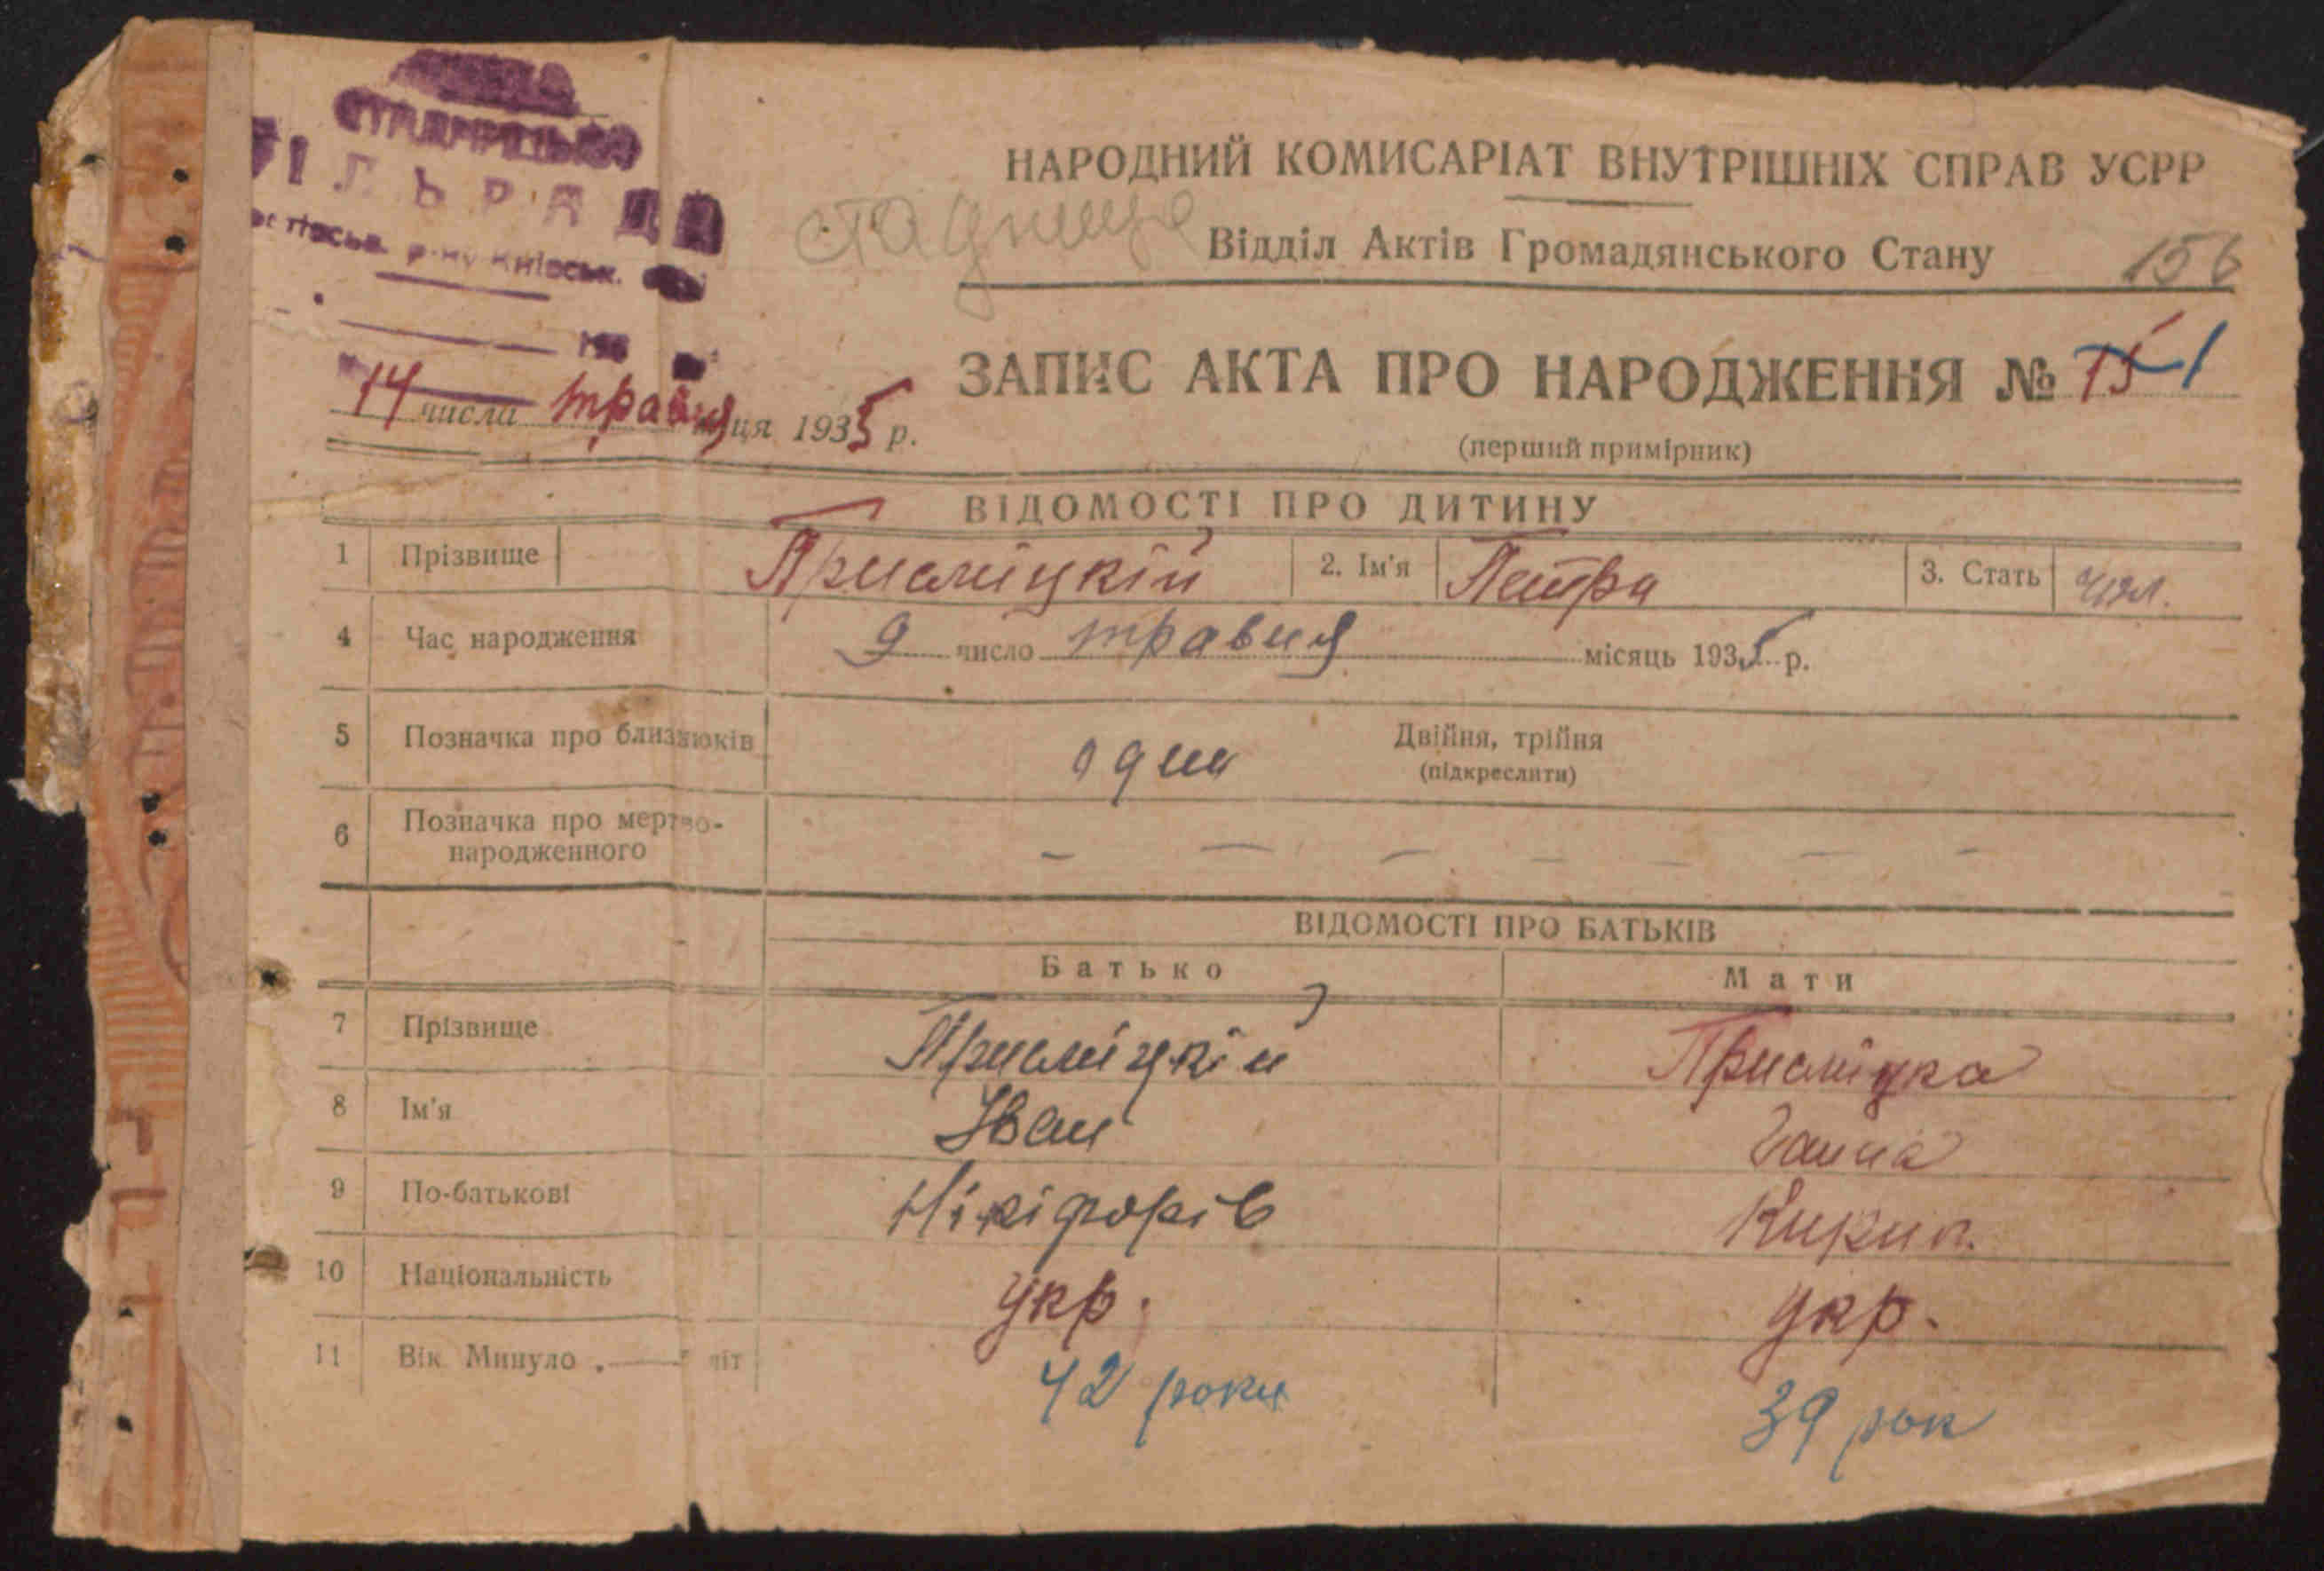 СІЛЬРАДА
р-ну Київськ.
стадниця
НАРОДНИЙ КОМИСАРІАТ ВНУТРІШНІХ СПРАВ УСРР
Відділ Актів Громадянського Стану 156
14 числа травня місяця 1935 р.
ЗАПИС АКТА ПРО НАРОДЖЕННЯ №
(перший примірник)
ВІДОМОСТІ ПРО ДИТИНУ
1 Прізвище Прислицкій 2. Ім'я Петро 3. Стать чол.
4 Час народження 9 число травня місяць 1935 р.
5 Позначка про близнюків один Двійня, трійня
(підкреслити)
6 Позначка про мертво-
народженного – – – – – – –
ВІДОМОСТІ ПРО БАТЬКІВ
Батько Мати
7 Прізвище Прислицкій Прислицка
8 Ім'я Іван Ганна
9 По-батькові Нікіфорів Кирил.
10 Національність укр. укр.
11 Вік Минуло . — літ 42 роки 39 рок